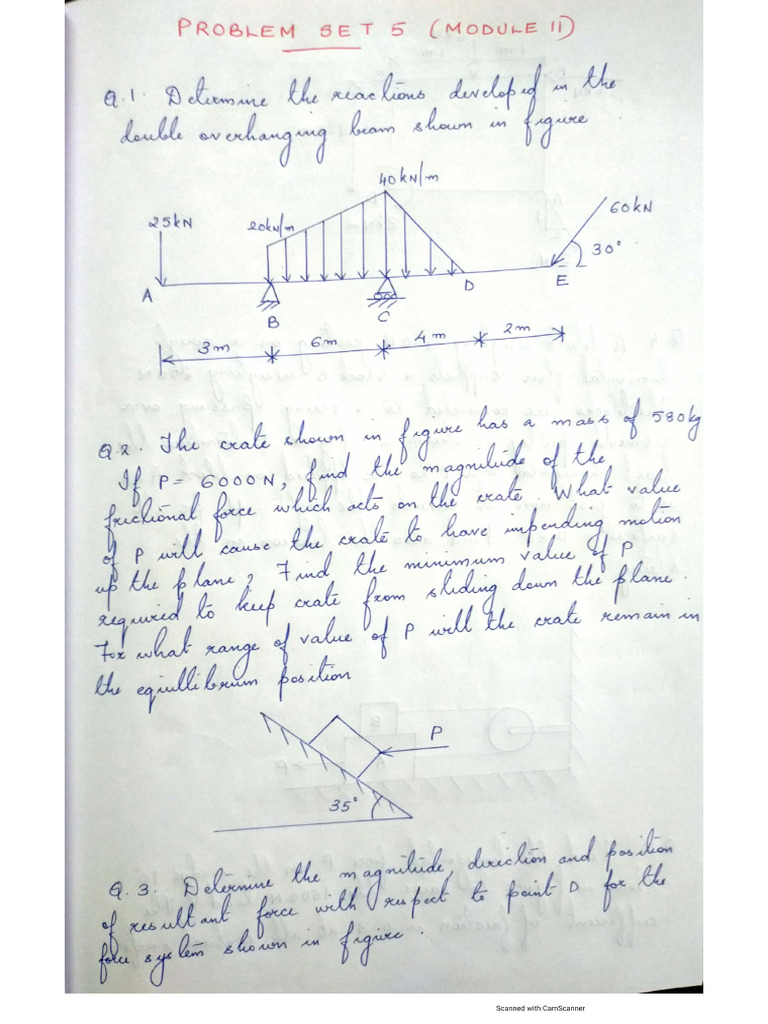 PROBLEM SET 5 (MODULE II)
Q.1. Determine the reactions developed in the
double overhanging beam shown in figure
40kN/m
25kN
20kN/m
60kN
30°
A
B
C
D
E
3m
6m
4m
2m
Q.2. The crate shown in figure has a mass of 580kg
If P = 6000N, find the magnitude of the
frictional force which acts on the crate. What value
of P will cause the crate to have impending motion
up the plane? Find the minimum value of P
required to keep crate from sliding down the plane.
For what range of value of P will the crate remain in
the equillibrium position
P
35°
Q.3. Determine the magnitude, direction and position
of resultant force with respect to point D for the
force system shown in figure.
Scanned with CamScanner